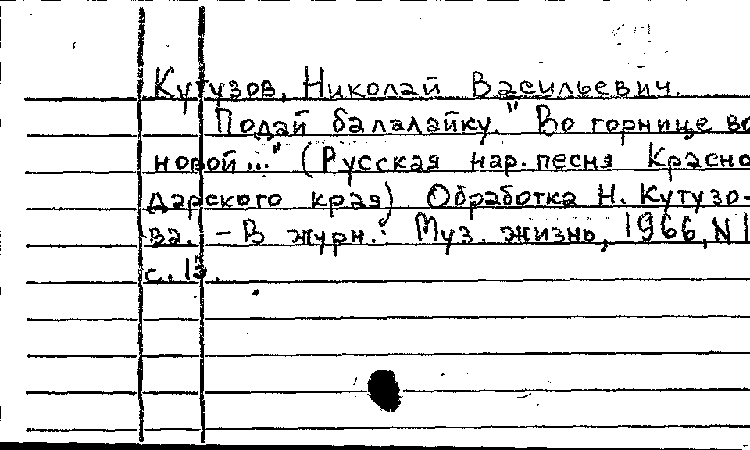 Кутузов, Николай Васильевич.
Подай балалайку. "Во горнице во
новой..." (Русская нар. песня Красно
дарского края) Обработка Н. Кутузо-
ва. – В журн.: Муз. жизнь, 1966, N 1
с. 15.